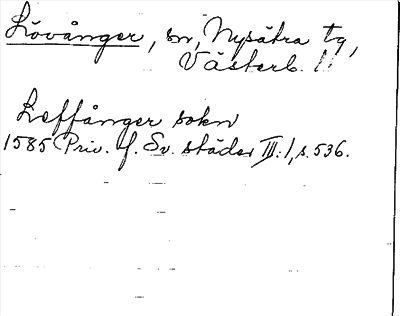 Lövånger, sn, Nysätra tg,
Västerb. ll
Leffånger sokn
1585 Priv. f. Sv. städer III:1, s. 536.